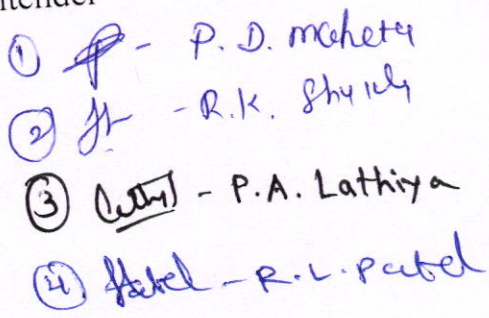 ① - P. D. Maheta
② - R.K. Shukla
③ - P.A. Lathiya
④ Patel - R.L. Patel